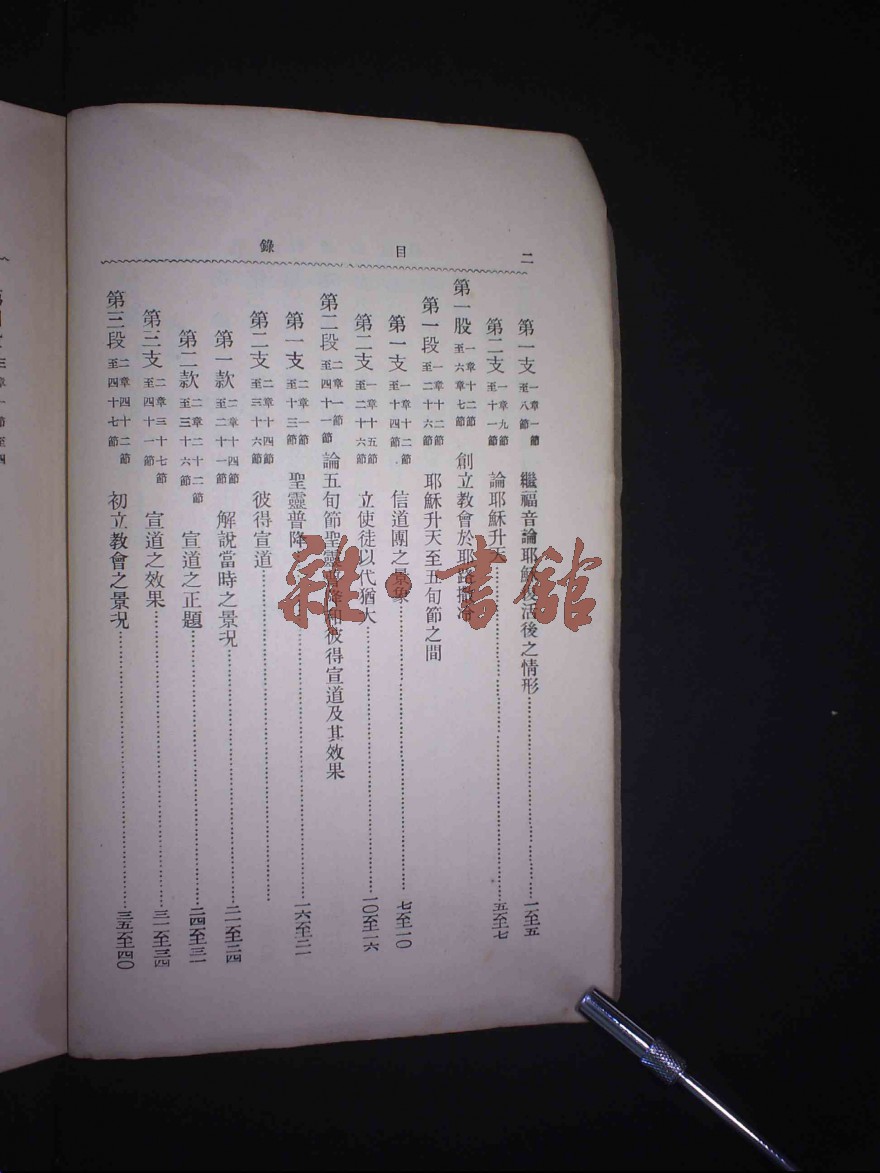 二 目錄
第一支 一章一節至八節 繼福音論耶穌復活後之情形 一至五
第二支 一章九節至十一節 論耶穌升天 五至七
第一股 一章十二節至六章七節 創立教會於耶路撒冷
第一段 一章十二節至二十六節 耶穌升天至五旬節之間
第一支 一章十二節至十四節 信道團之景象 七至一〇
第二支 一章十五節至二十六節 立使徒以代猶大 一〇至一六
第二段 二章一節至四十一節 論五旬節聖靈普降和彼得宣道及其效果
第一支 二章一節至十三節 聖靈普降 一六至二一
第二支 二章十四節至三十六節 彼得宣道
第一款 二章十四節至二十一節 解說當時之景況 二一至二四
第二款 二章二十二節至三十六節 宣道之正題 二四至三一
第三支 二章三十七節至四十一節 宣道之效果 三一至三四
第三段 二章四十二節至四十七節 初立教會之景況 三五至四〇
雜·書館